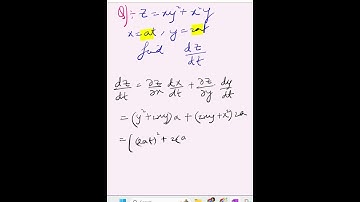 Q) ÷ Z = xy² + x²y
x = at, y = 2at
find dz/dt
dz/dt = ∂z/∂x dx/dt + ∂z/∂y dy/dt
= (y² + 2xy) a + (2xy + x²) 2a
= [(2at)² + 2(a